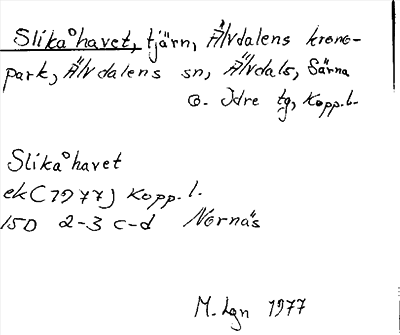 Slikåhavet, tjärn, Älvdalens krono-
park, Älvdalens sn, Älvdals, Särna
o. Idre tg, Kopp.l.
Slikåhavet
ek (1977) Kopp.l.
15D 2-3 c-d Nornäs
M. Lgn 1977